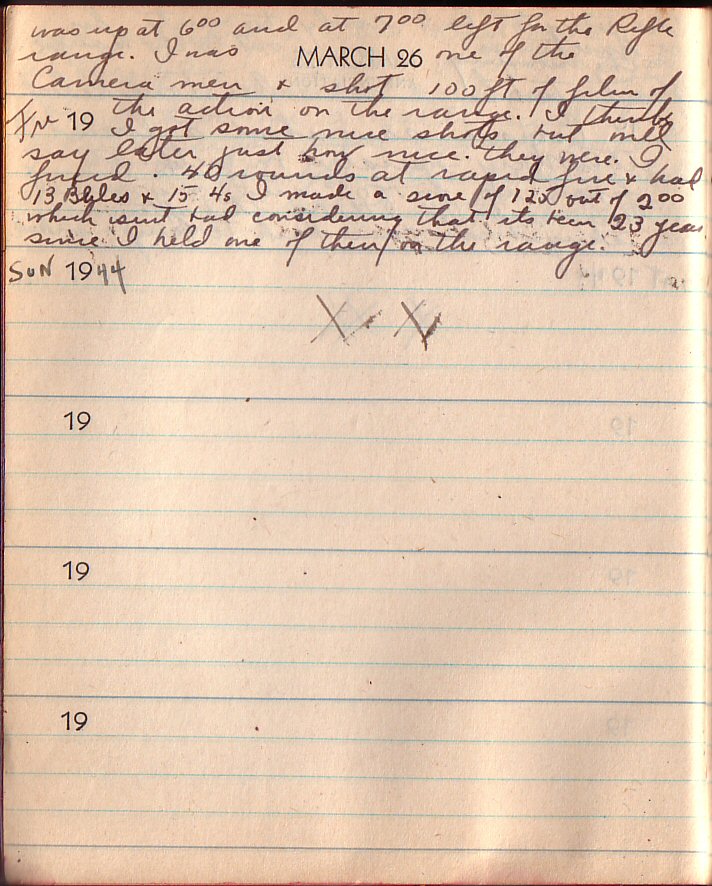 was up at 6⁰⁰ and at 7⁰⁰ left for the Rifle
range. I was MARCH 26 one of the
Camera men & shot 100 ft of film of
the action on the range. I think
Fri 19 I got some nice shots but will
say later just how nice they were. I
fired 40 rounds at rapid fire & had
13 & 15 4s I made a score of 125 out of 200
which isn't bad considering that its been 23 years
since I held one of them on the range.
SUN 1944
X X
19
19
19